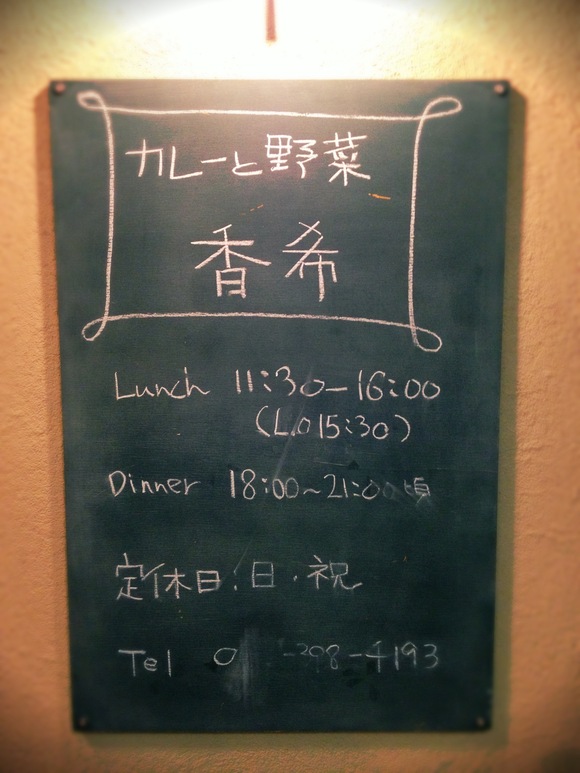 カレーと野菜
香希
Lunch 11:30-16:00
(L.o 15:30)
Dinner 18:00~21:00頃
定休日:日・祝
Tel 0 -298-4193